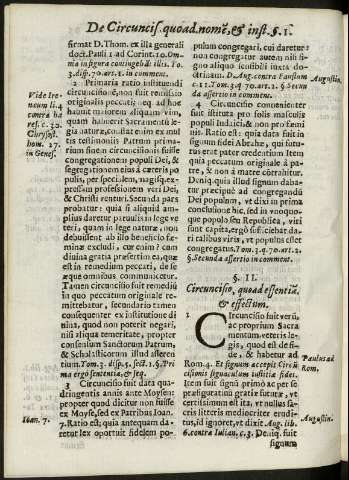 De Circuncis. quoad. nomē, & inst. §. I.
firmat D. Thom. ex illa generali
doct. Pauli 1. ad Corint. 10. Om-
nia in figura contingebāt illis. To.
3. disp. 70. art. 2. in comment.
2 Primaria ratio instituendi
circuncisionē, non fuit remissio
originalis peccati; eq̄ ad hoc
habuit maiorem aliquam vim,
quam haberent Sacramenta le-
gis naturæ, constat enim ex mul
tis testimonijs Patrum prima-
rium finem circuncisionis fuisse
congregationem populi Dei, &
segregationem eius à cæteris po
pulis, per specialem, magisq; ex-
pressam professionem veri Dei,
& Christi venturi. Secunda pars
probatur: quia si aliquid am-
plius daretur paruulis in lege ve
teri, quam in lege naturæ, non
debuissent ab illo beneficio fœ-
minæ excludi, cùm enim
diuina gratia præsertim ea, quæ
est in remedium peccati, de se
æque omnibus communicetur.
Tamen circuncisio fuit remediū
in quo peccatum originale re-
mittebatur, secundario tamen
consequenter ex institutione di
uina, quod non poterit negari,
nisi aliqua temeritate, propter
consensum Sanctorum Patrum,
& Scholasticorum illud asseren
tium. Tom. 3. disp. 5. sect. 1. §. Pri
ma ergo sententia, & seq.
3 Circuncisio fuit data qua-
dringentis annis ante Moysen:
propter quod dicitur non fuisse
ex Moyse, sed ex Patribus Ioan.
7. Ratio est; quia antequam da-
retur lex oportuit fidelem po-
Vide Ire-
neum li. 4
contra hæ
res. c. 30.
Chrysost.
hom. 27.
in Genes.
Ioan. 7.
pulum congregari, cui daretur:
non congregatur autem nisi si-
gno aliquo sensibili iuxta do-
ctrinam. D. Aug. contra Faustum
c. 11. Tom. 3. q. 70. art. 2. §. Secun
da assertio in comment.
4 Circuncisio conuenienter
fuit instituta pro solis masculis
populi Iudaici, & non pro femi
nis. Ratio est: quia data fuit in
signum fidei Abrahæ, qui futu-
rus erat pater credentium. Item
quia peccatum originale à pa-
tre, & non à matre cōtrahitur.
Deniq. quia illud signum daba-
tur præcipuè ad congregandū
Dei populum, vt dixi in prima
conclusione hic, sed in vnoquo-
que populo seu Republica, viri
sunt capita, ergo sufficiebat da-
ri talibus viris, vt populus esset
congregatus. Tom. 3. q. 70. art. 2.
§. Secunda assertio in comment.
Augustin.
§. II.
Circuncisio, quoad essentiā,
& effectum.
1 Circuncisio fuit verū,
ac proprium Sacra
mentum veteris le-
gis, quod est de fi-
de, & habetur ad
Rom. 4. Et signum accepit Circū
cisionis signaculum iustitiæ fidei.
Item fuit signū primo ac per se
præfiguratiuum gratiæ futuræ, vt
certissimum est ita, vt nullus sa-
cris litteris mediocriter erudi-
tus, id ignoret, vt dixit Aug. lib.
6. contra Iulian. c. 3. Deniq. fuit
signum
Paulus ad
Rom.
Augustin.